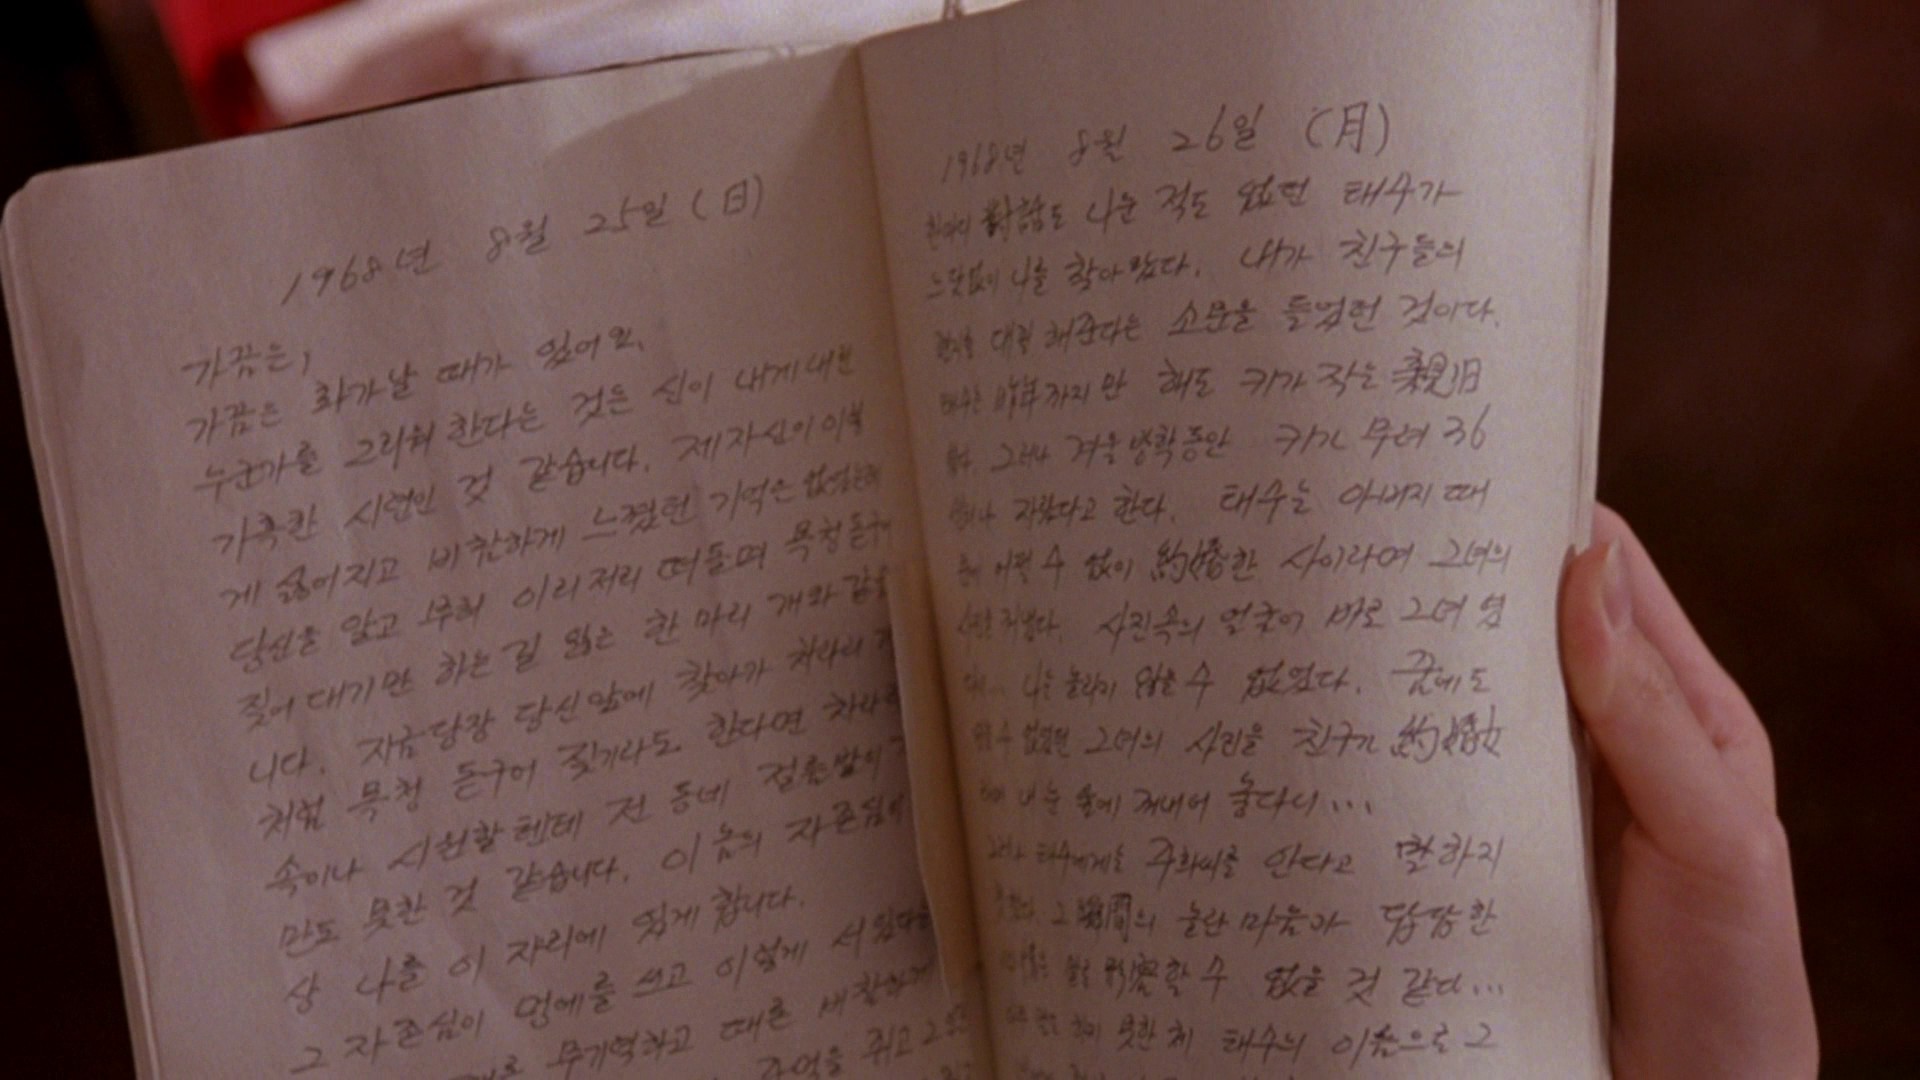 1968년 8월 25일 (日)
가끔은,
가끔은 화가날 때가 있어요.
누군가를 그리워 한다는 것은 신이 내게 내린
가혹한 시련인 것 같습니다. 제 자신이 이렇
게 싫어지고 비참하게 느꼈던 기억은 없었는데
당신을 알고 이리저리 떠돌며 목청 돋구어
짖어대기만 하는 길 잃은 한 마리 개와 같을
니다. 지금 당장 당신 앞에 찾아가 차라리
처럼 목청 돋구어 짖기라도 한다면 차라리
속이나 시원할텐데 전 동네 절름발이
만도 못한 것 같습니다. 이 놈의 자존심이
상 나를 이 자리에 있게 합니다.
그 자존심이 멍에를 쓰고 이렇게 서 있다는
무기력하고 때론
추억을 쥐고
1968년 8월 26일 (月)
한마디 對話도 나눈 적도 없던 태수가
느닷없이 나를 찾아왔다. 내가 친구들의
편지를 대필 해준다는 소문을 들었던 것이다.
태수는 昨年까지만 해도 키가 작은 親旧
였다. 그러나 겨울방학동안 키가 무려 36
센치나 자랐다고 한다. 태수는 아버지 때
문에 어쩔 수 없이 約婚한 사이라며 그녀의
사진을 사진속의 얼굴이 바로 그녀 였
다니... 나는 놀라지 않을 수 없었다. 꿈에도
잊을 수 없었던 그녀의 사진을 친구가 約婚女
라며 내 눈 앞에 꺼내어 놓다니...
그러나 태수에게는 주희씨를 안다고 말하지
못했다. 그 瞬間의 놀란 마음과 답답한
할 수 없을 것 같다...
못한 채 태수의 이름으로 그